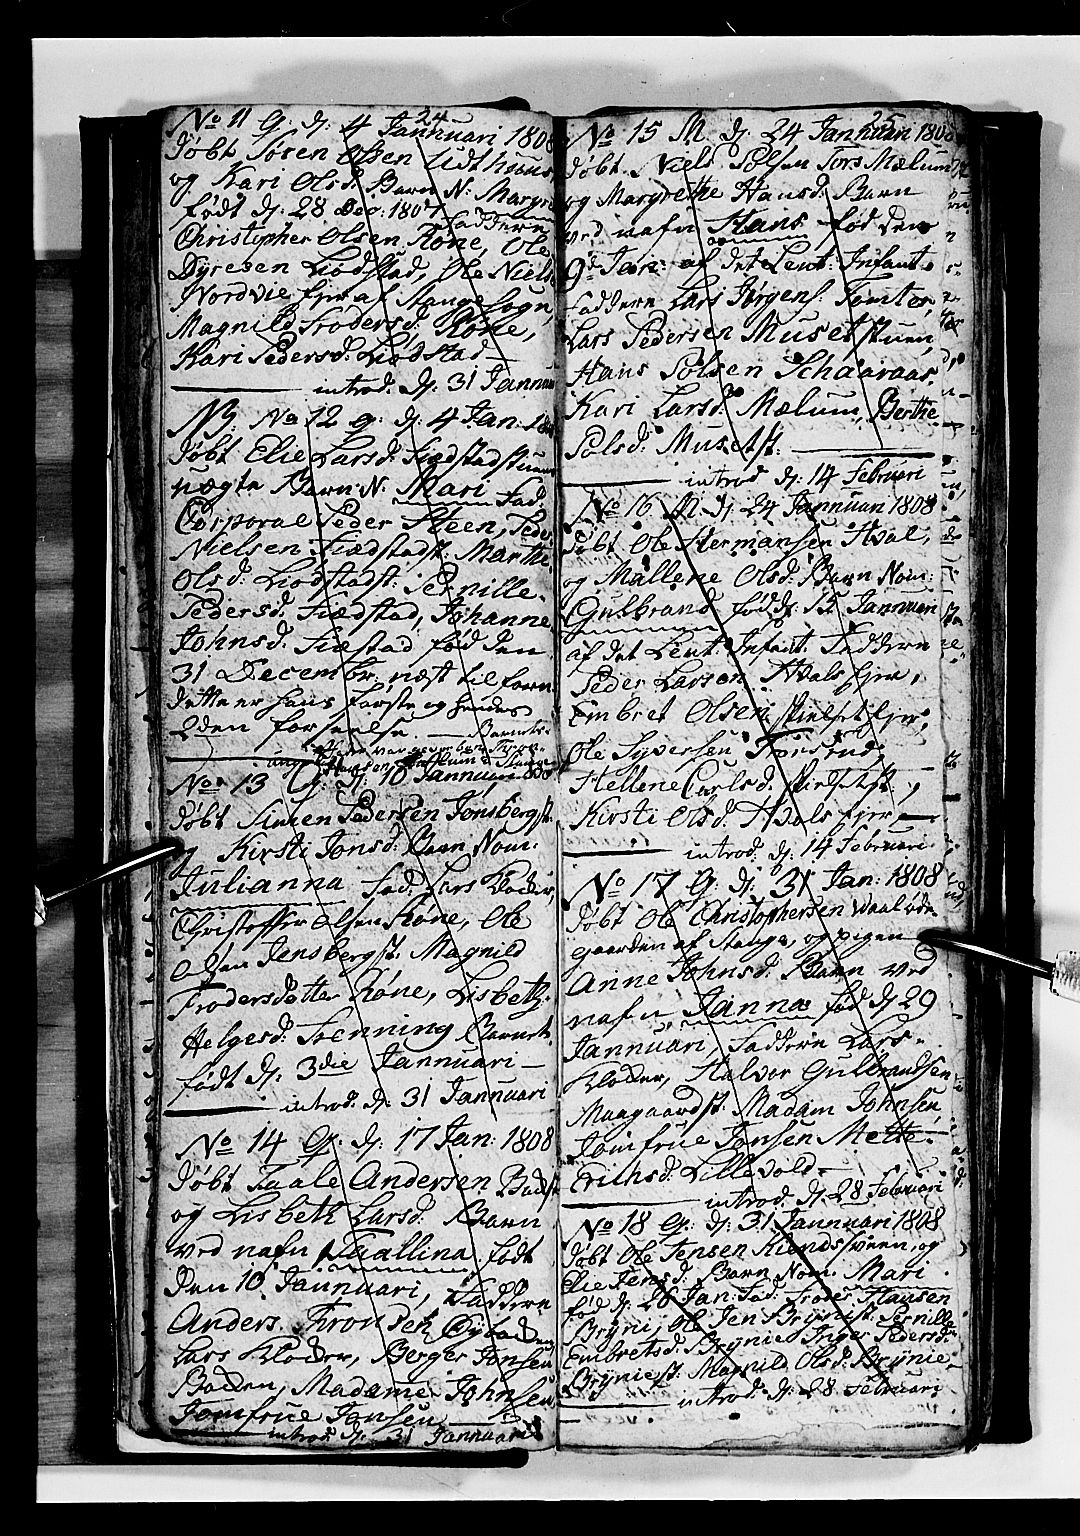 No 11 G: d: 4 Jannuari 1808
24
døbt Søren Olsen Lidthuus,
og Kari Olsd: Barn N: Margre
født d: 28 Dec: 1807
Faddere
Christopher Olsen Kone, Ole
Dyresen Liodstad, Ole Niels
Nordvie fjer af Stange Sogn,
Magnild Frodersd: Kone,
Kari Pedersd: Liodstad
introd: d: 31 Jannua
NB: No 12 g: d: 4 Jan: 18
døbt Elie Larsd: Fiædstadstuen
uægte Barn N: Mari Fad:
Corporal Peder Steen, Peder
Nielsen Fiædstadst: Marthe
Olsd: Liodstadst: Pernille
Pedersd: Fiædstad, Johanne
Johnsd: Fiæstad fød den
31 Decembr: næst tilforn
dette er hans første og hendes
2den forseelse. Barnets
No 13 G: d: 10 Jannuari
døbt Simen Pedersen Jønsbergst:
og Kirsti Jonsd: Barn Nom:
Julianna Fad: Lars Kloder,
Christoffer Olsen Kone, Ole
Olsen Jensbergst: Magnild
Frodersdatter Kone, Lisbeth
Helgesd: Svenning Barnet
født d: 3die Jannuari
introd: d: 31 Jannuari
No 14 G: d: 17 Jan: 1808
døbt Paale Andersen Badst
og Lisbeth Larsd: Barn
ved nafn Paallina født
den 10 Jannuari, Faddere
Anders
Lars Kloder, Berger Jonsen
Badden, Madame Johnsen
Jomfrue Jansen
introd: d: 31 Jannuari
No 15 M d: 24 Jannuari 1808
25
døbt Niels Polsen Fors Mælum
og Margrethe Hansd: Barn
ved nafn Hans fød den
9d Jan: af det Leut: Infant:
Faddere Lars Jørgens: Tomter,
Lars Pedersen Musetstuen,
Hans Polsen Schaaraas,
Kari Larsd: Mælum, Berthe
Polsd: Musetst:
introd d: 14 Februari
No 16 M d: 24 Jannuari 1808
døbt Ole Hermansen Hval,
og Mallene Olsd: Barn Nom:
Gulbrand fød d: 15 Jannuari
af det Leut: Infant: Faddere
Peder Larsen Hvals fjer,
Embret Olsen
Ole Syversen
Hellene Carlsd:
Kirsti Olsd: Hvals fjer
introd: d: 14 Februari
No 17 G: d: 31 Jan: 1808
døbt Ole Christophersen Waal øde
gaarden af Stange, og pigen
Anne Johnsd: Barn ved
nafn Janna fød d 29
Jannuari, Faddere Lars
Kloder, Halvor Gulbrandsen
Maagaardst: Madam Johnsen
Jomfrue Jonsen Mette
Erichsd: Lillevold
introd: d: 28 Februari
No 18 G: d: 31 Jannuari 1808
døbt Ole Jensen Kiendssveen, og
Elie Jensd: Barn Nom: Mari
fød d: 26 Jan: Fad: Froder Hansen
Brÿni, Ole Jens Brÿniest: Pernille
Embretsd: Brÿnie Inger Pedersd:
Brÿniest: Magnild Olsd: Brÿnie
introd: d: 28 Februari